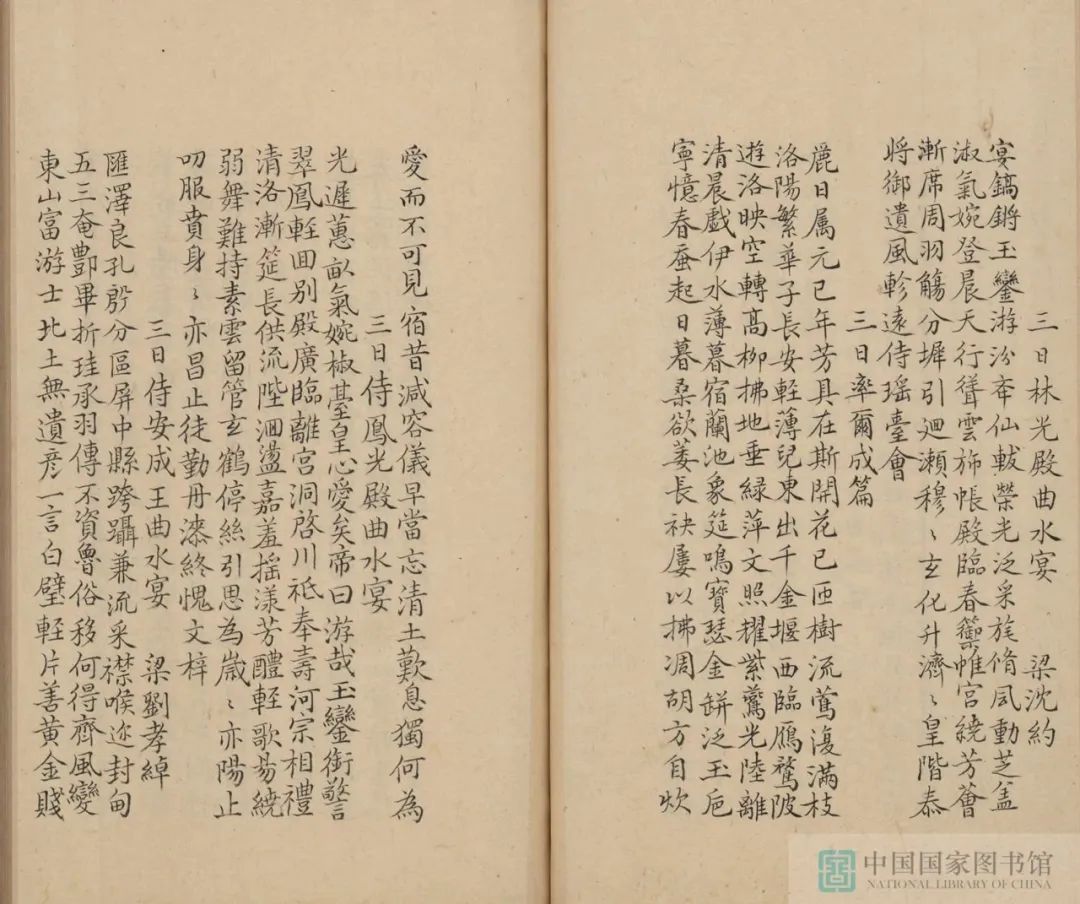 三日林光殿曲水宴　梁沈約
宴鎬鏘玉鑾游汾奔仙軷榮光泛采旄脩風動芝盖
淑氣婉登晨天行聳雲斾帳殿臨春籞帷宮繞芳薈
漸席周羽觴分墀引迴瀬穆〻玄化升濟〻皇階泰
將御遺風軫遠侍瑶臺會
三日率爾成篇
麗日属元巳年芳具在斯開花已匝樹流鶯復滿枝
洛陽繁華子長安輕薄兒東出千金堰西臨鴈鶩陂
遊洛映空轉高柳拂地垂緑萍文照耀紫鷰光陸離
清晨戲伊水薄暮宿蘭池象筵鳴寶瑟金缾泛玉巵
寧憶春蚕起日暮桑欲萎長袂屢以拂凋胡方自炊
愛而不可見宿昔減容儀早當忘清土歎息獨何為
三日侍鳳光殿曲水宴
光遲蕙畝氣婉椒臺皇心愛矣帝曰游哉玉鑾衘警
翠鳳輕囬别殿廣臨離宮洞啓川祇奉壽河宗相禮
清洛漸筵長供流陛洄盪嘉羞揺漾芳醴輕歌易繞
弱舞難持素雲留管玄鶴停絲引思為嵗〻亦陽止
叨服賁身〻亦昌止徒勤丹漆終愧文梓
三日侍安成王曲水宴　梁劉孝綽
匯澤良孔殷分區屏中縣跨躡兼流采襟喉迩封甸
五三奄酆畢折珪承羽傳不資魯俗移何得齊風變
東山富游士北土無遺彦一言白璧輕片善黄金賤
中国国家图书馆
NATIONAL LIBRARY OF CHINA